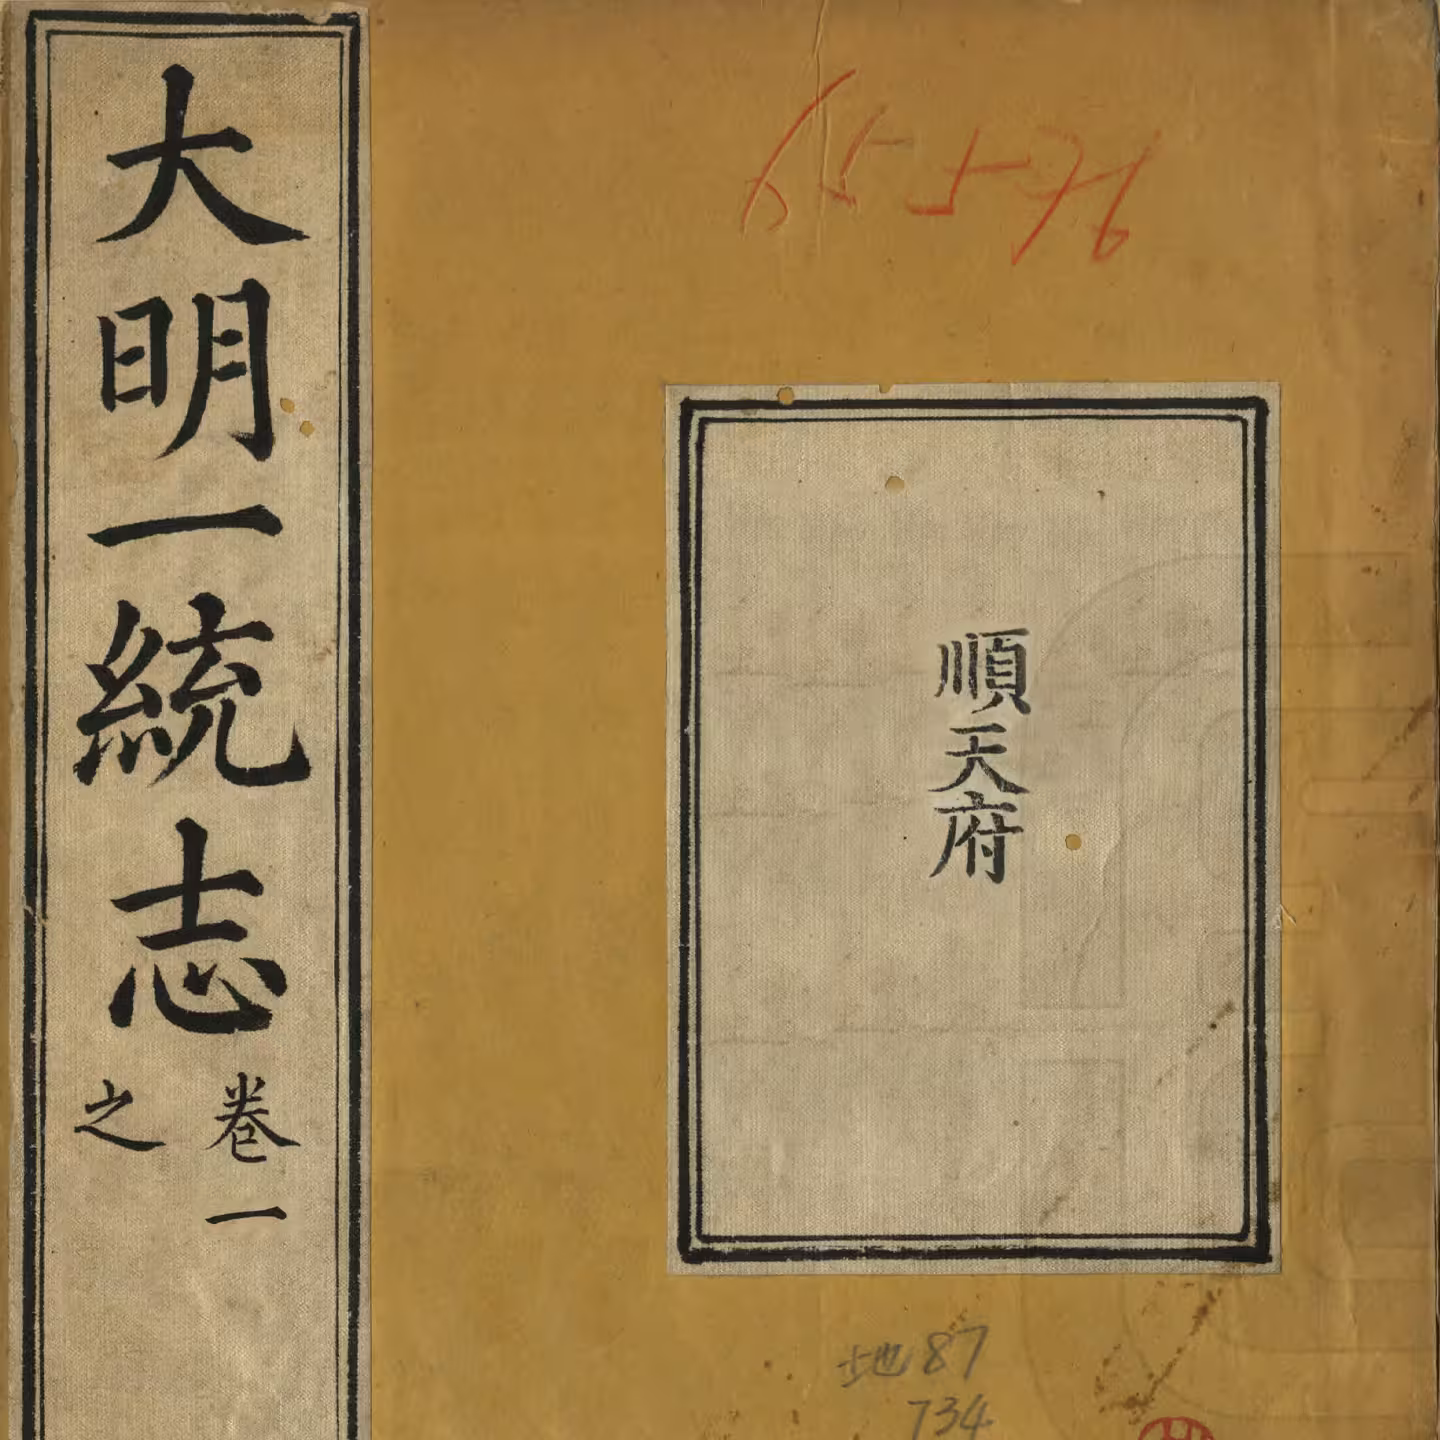 大明一統志
卷一
之
順天府
地87
734